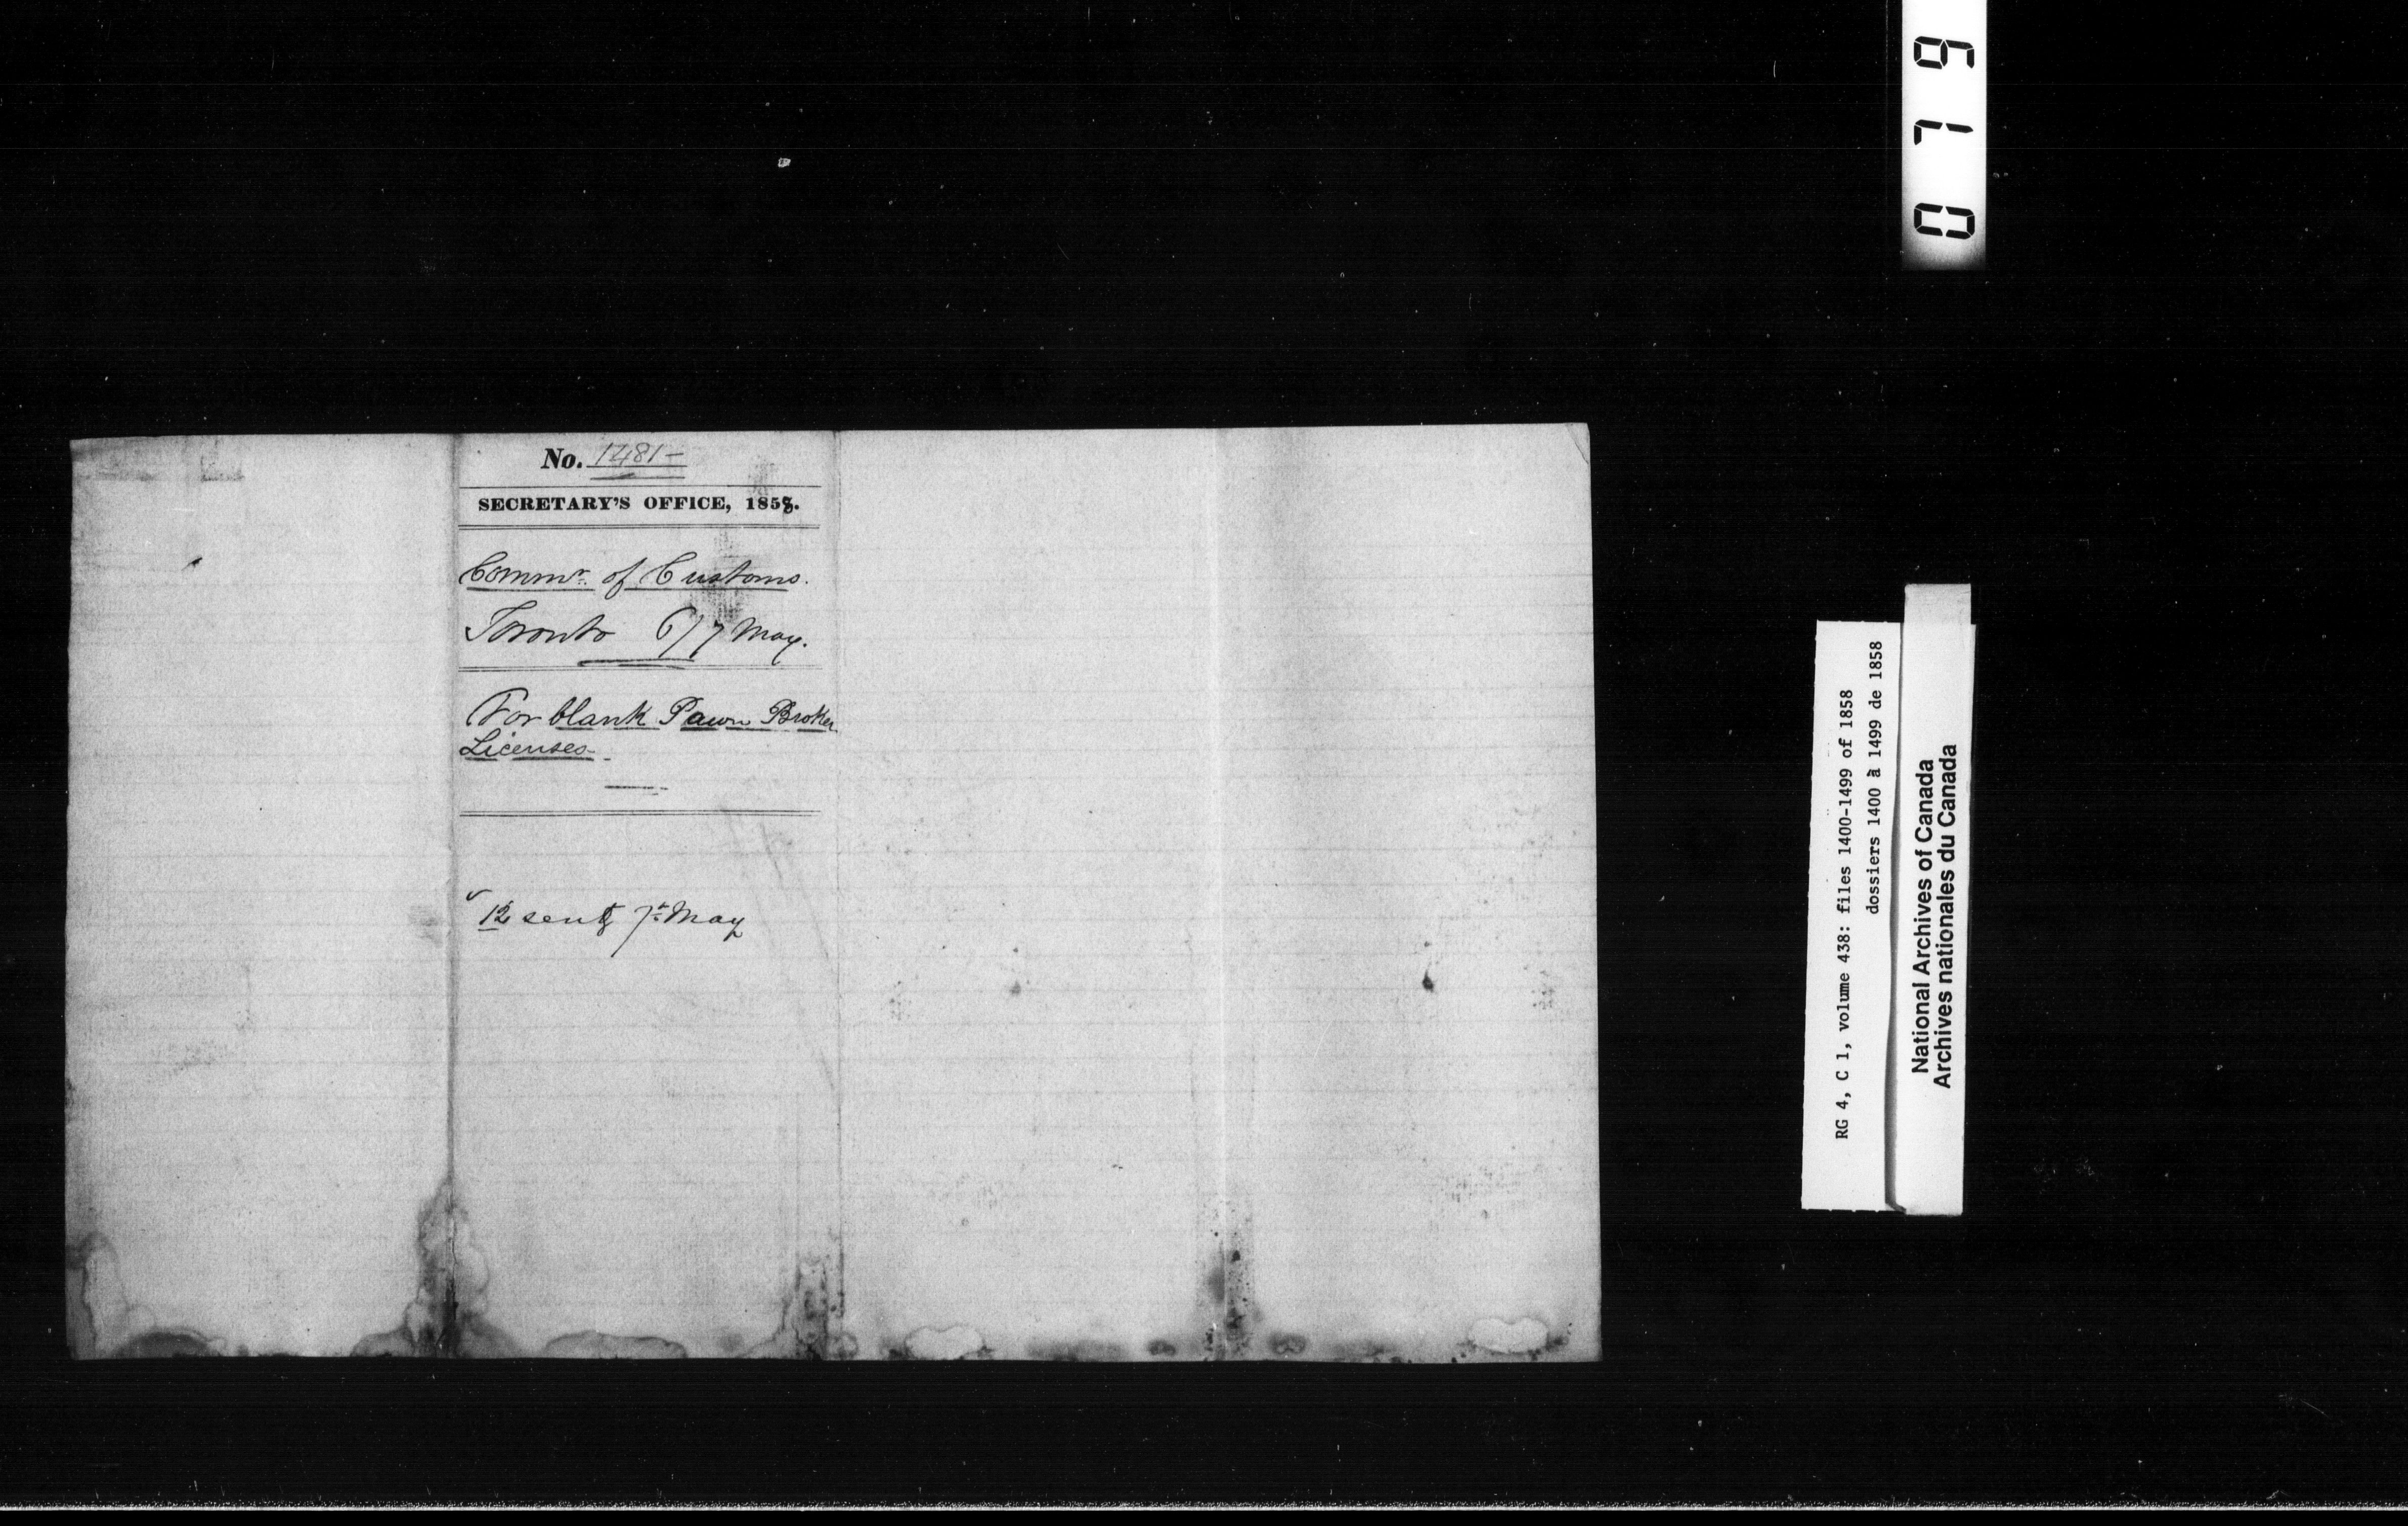 No. 1481-
SECRETARY'S OFFICE, 1858.
Commr. of Customs.
Toronto 6/7 May.
For blank Pawn Broker
Licenses.
12 sent 7th May
0 7 9
RG 4, C 1, volume 438: files 1400-1499 of 1858
dossiers 1400 à 1499 de 1858
National Archives of Canada
Archives nationales du Canada